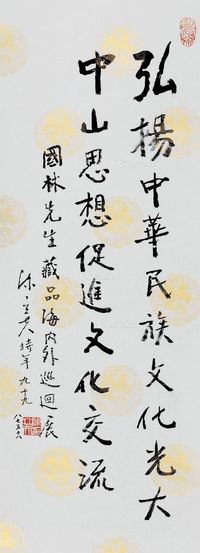 弘揚中華民族文化光大
中山思想促進文化交流
國林先生藏品海内外巡迴展
陳立夫 時年九十九
八七五十八